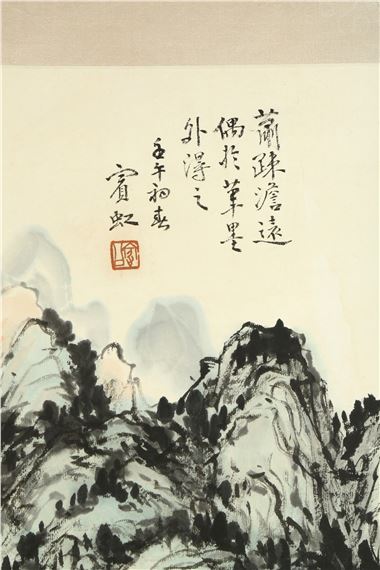 蕭疎澹遠
偶於筆墨
外得之
壬午初春
賓虹